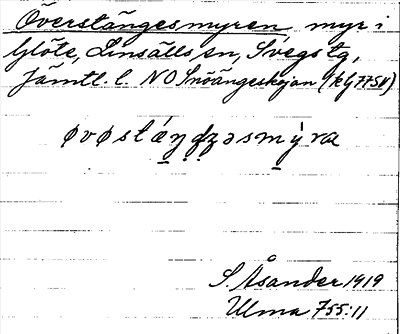 Överstängesmyren myr i
Glöte, Linsälls sn, Svegs tg,
Jämtl. l. NO Snöängeskojan (kG7750)
øvøstǽŋdʐəsmỳra
S. Åsander 1919
Ulma 755:11